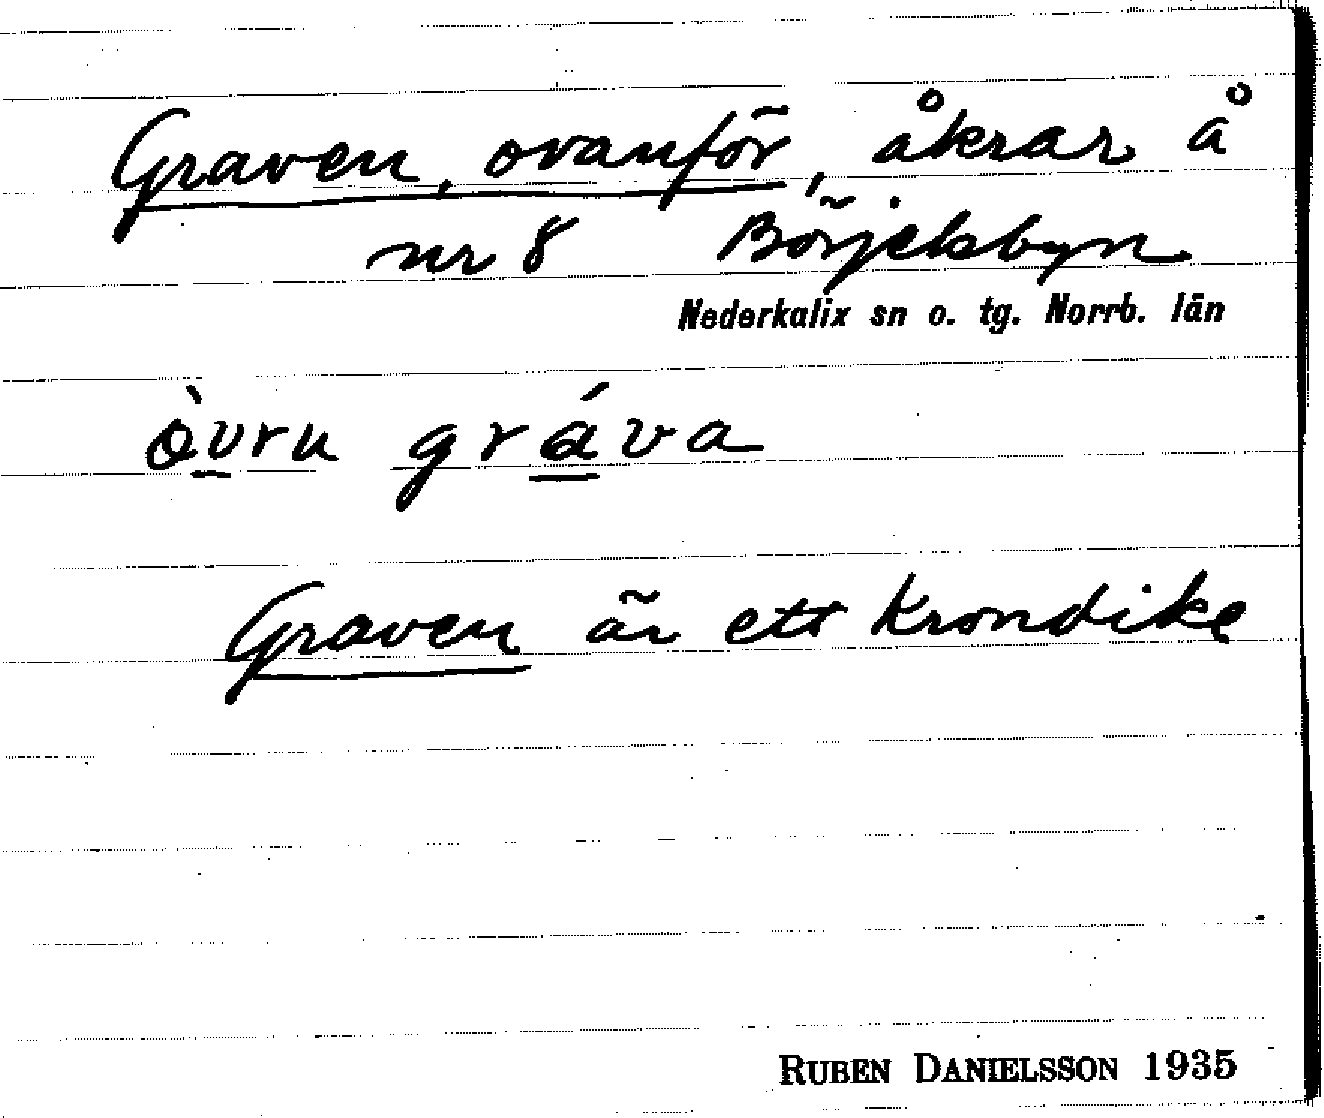 Graven, ovanför, åkrar å
nr 8 Börjelsbyn
Nederkalix sn o. tg. Norrb. län
òvru gráva
Graven är ett krondike
RUBEN DANIELSSON 1935